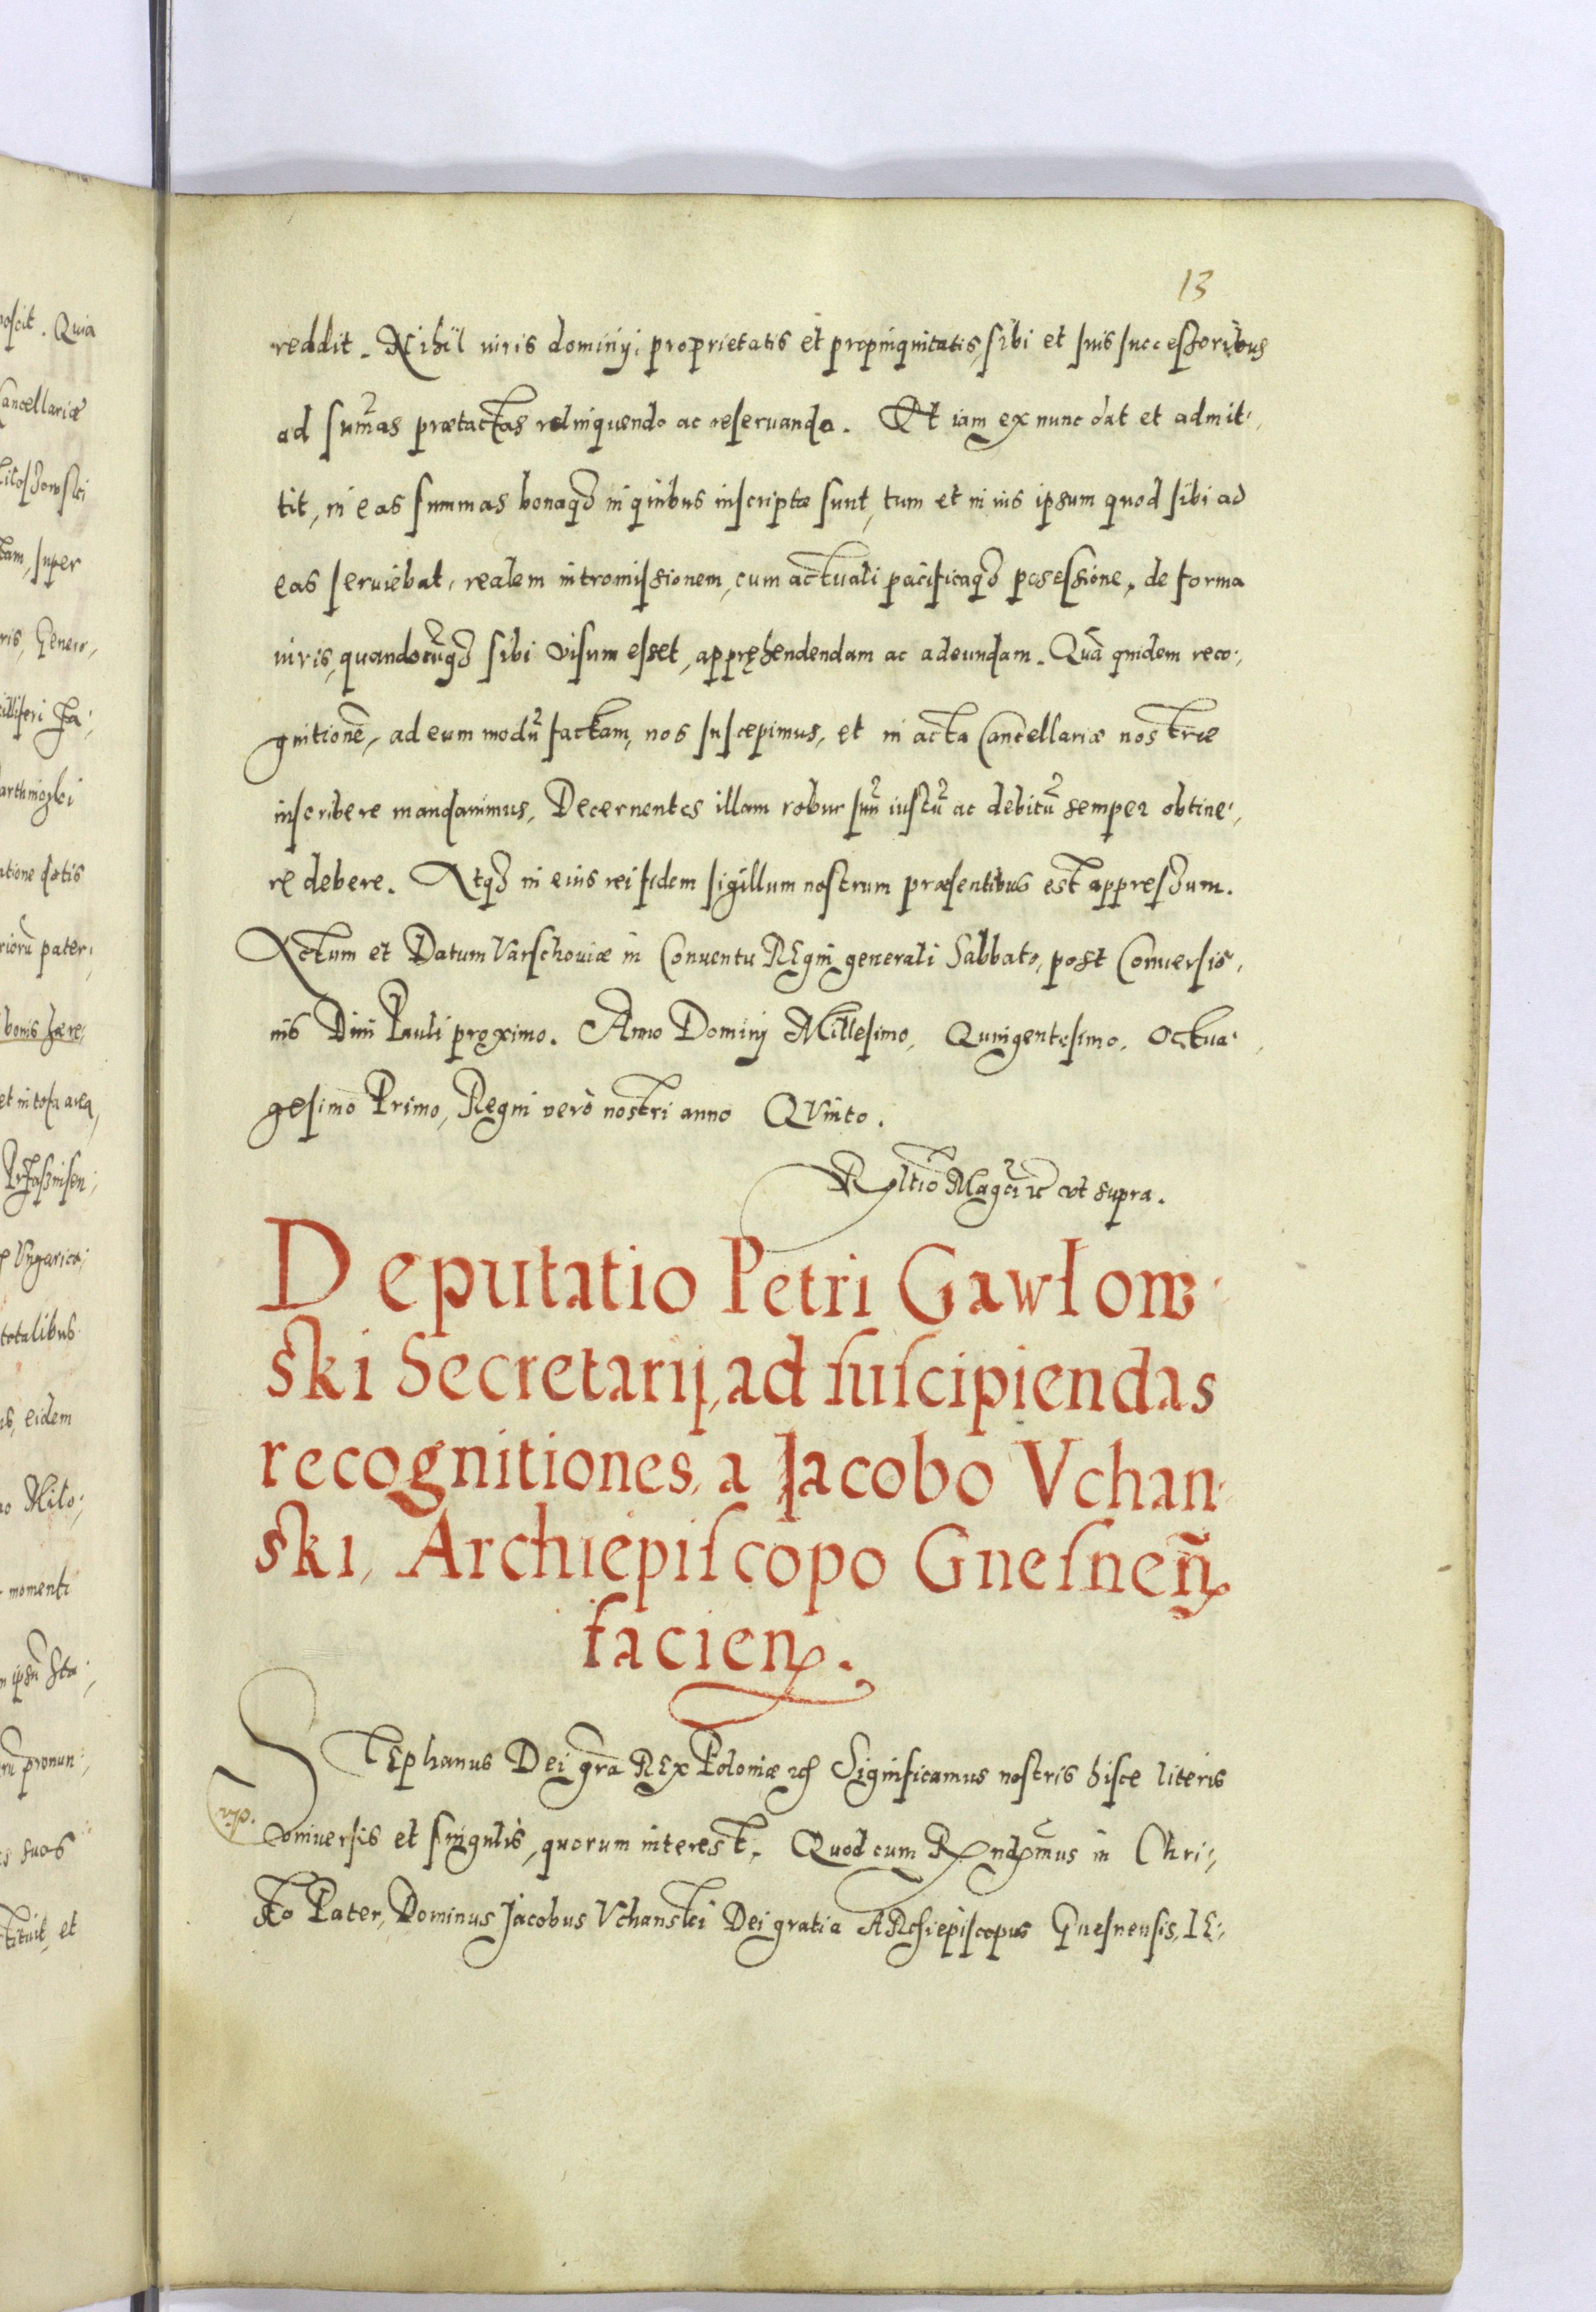 13
reddit. Nihil iuris dominij, proprietatis et propinquitatis, sibi et suis successoribus
ad sum̃as prætactas relinquendo ac reseruando. Et iam ex nunc dat et admit-
tit, in eas summas bonaq₃ in quibus inscriptæ sunt, tum et in ius ipsum quod sibi ad
eas seruiebat, realem intromissionem, cum actuali pacificaq₃ possessione, de forma
iuris, quandocũq₃ sibi visum esset, appręhendendam ac adeundam. Quã quidem reco-
gnitionẽ, ad eum modũ factam, nos suscepimus, et in acta Cancellariæ nostræ
inscribere mandauimus, Decernentes illam robur suũ iustũ ac debitũ semper obtine-
re debere. Atq₃ in eius rei fidem sigillum nostrum præsentibus est appressum.
Actum et Datum Varschouiæ in Conuentu REgni generali Sabbato, post Conuersio-
nis Diui Pauli proximo. Anno Dominj Millesimo, Quingentesimo, Octua-
gesimo Primo, Regni verò nostri anno QVinto.
Rltiõ Magci ꝛc vt supra.
Deputatio Petri Gawłow-
ski Secretarij, ad suscipiendas
recognitiones, a Jacobo Vchan-
ski, Archiepiscopo Gnesneñ
facien.
STEphanus Dei gr̃a REx Poloniæ ꝛc Significamus nostris hisce literis
vniuersis et singulis, quorum interest, Quod cum Rndmus in Chri-
sto Pater, Dominus Jacobus Vchanski Dei gratia ARchiepiscopus Gnesnensis, LE-